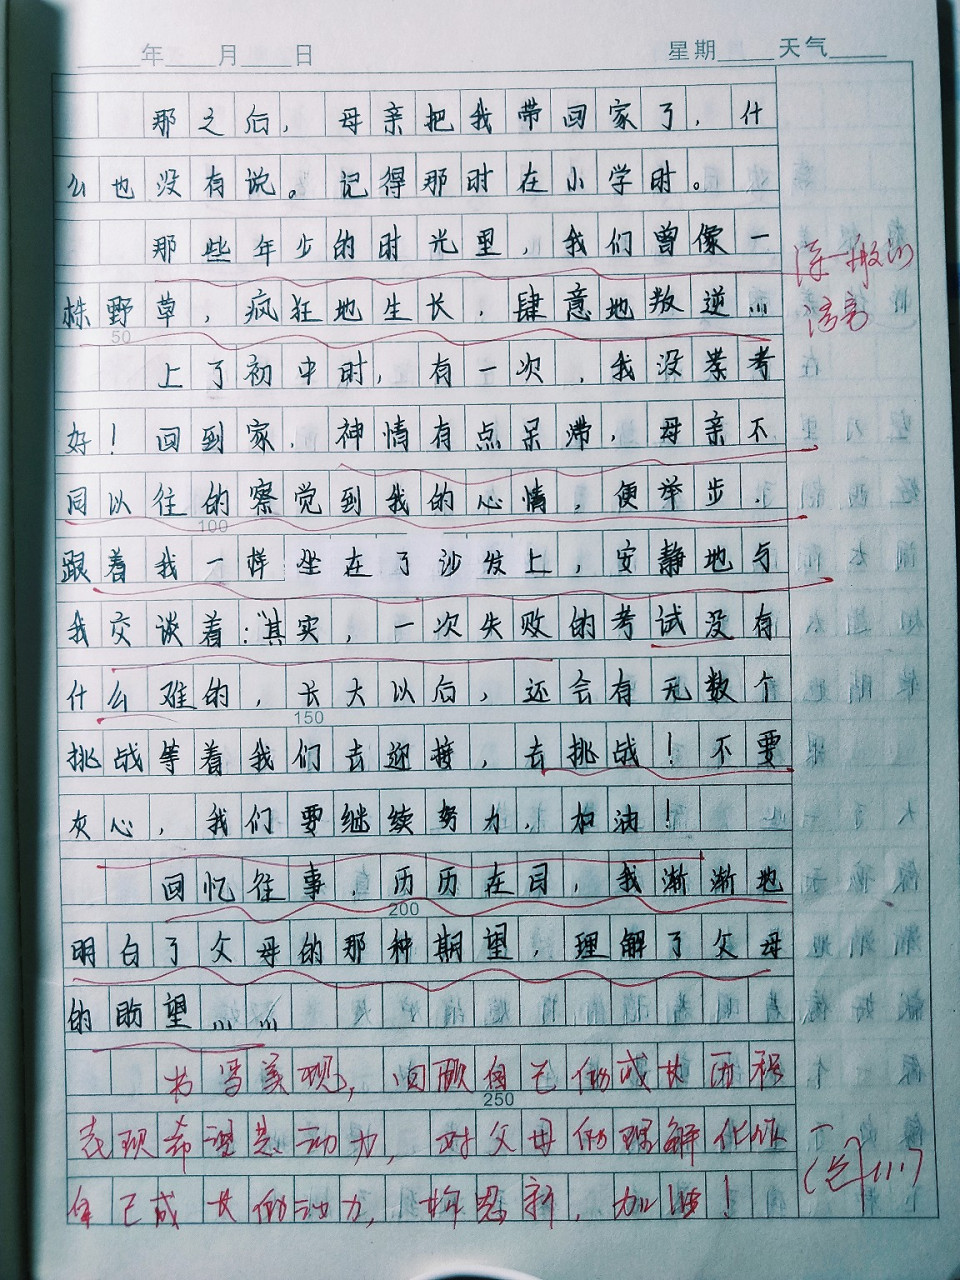 年 月 日 星期 天气
那之后，母亲把我带回家了，什
么也没有说。记得那时在小学时。
那些年少的时光里，我们曾像一
株野草，疯狂地生长，肆意地叛逆…
50
上了初中时，有一次，我没考
好！回到家，神情有点呆滞，母亲不
同以往的察觉到我的心情，便举步，
100
跟着我一样坐在了沙发上，安静地与
我交谈着："其实，一次失败的考试没有
什么难的，长大以后，还会有无数个
150
挑战等着我们去迎接，去挑战！不要
灰心，我们要继续努力，加油！
回忆往事，历历在目，我渐渐地
200
明白了父母的那种期望，理解了父母
的盼望……
书写美观，回顾自己的成长历程
250
表现希望是动力，对父母的理解化作
自己成长的动力，构思新，加油！
诗一般的
语言